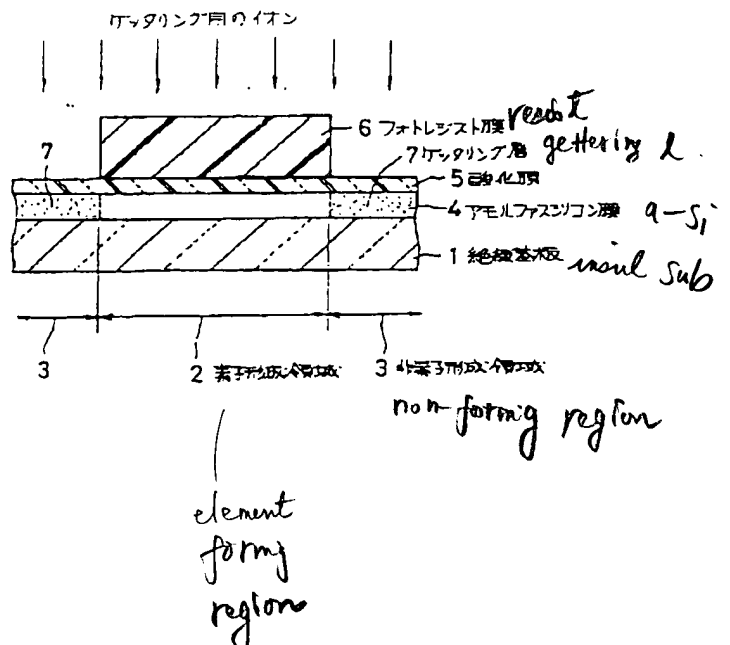 ゲッタリング用のイオン
6 フォトレジスト膜 resist
7
7 ゲッタリング層 gettering l.
5 酸化膜
4 アモルファスシリコン膜 a-Si
1 絶縁基板 insul sub
3
2 素子形成領域
3 非素子形成領域
non-forming region
element
forming
region